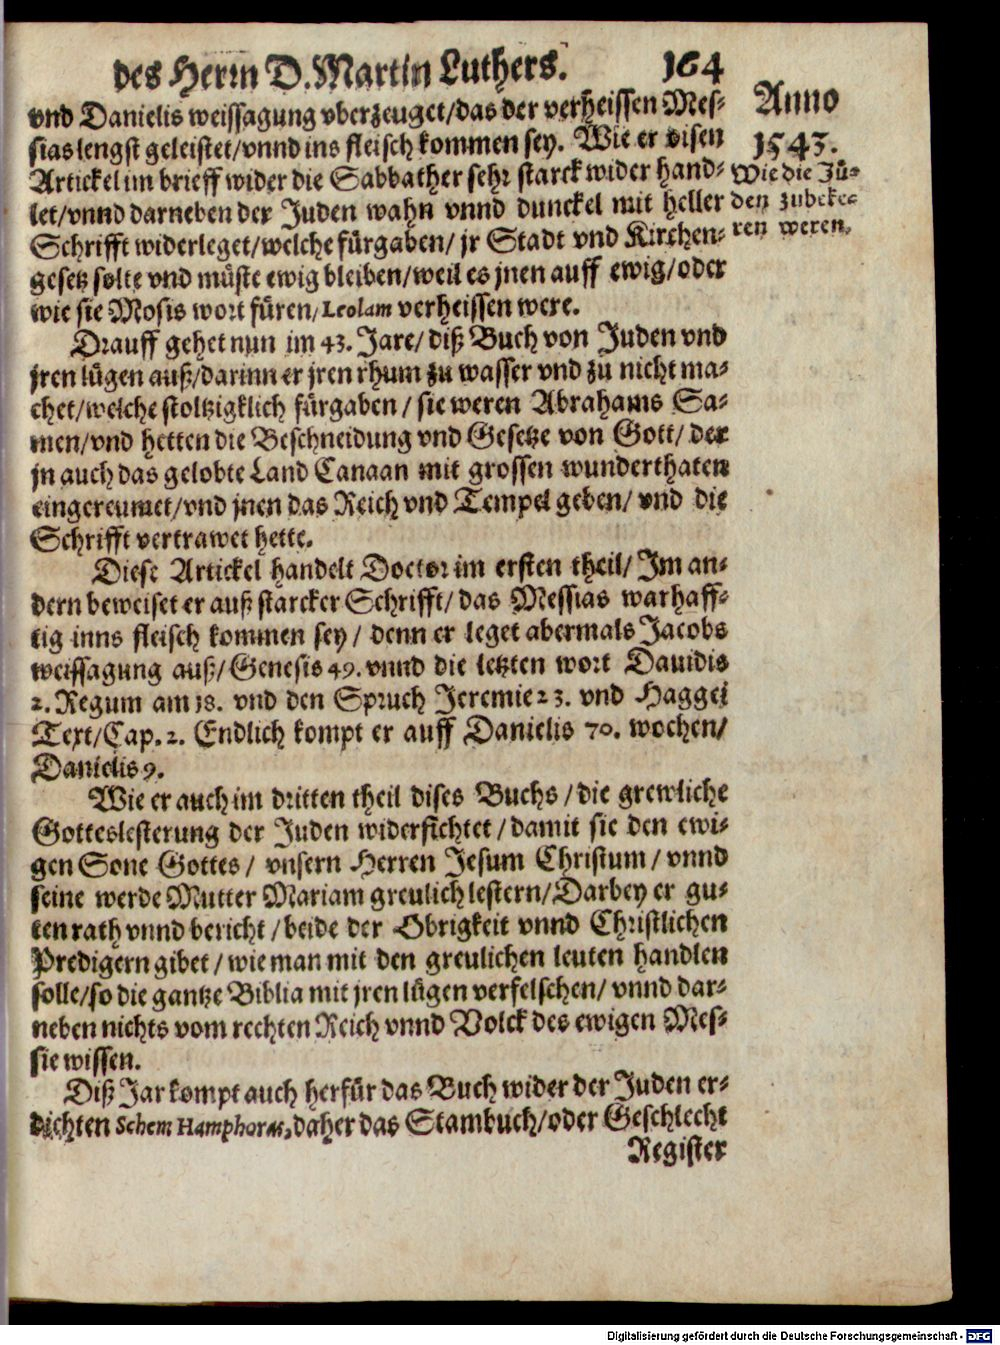 des Herrn D. Martin Luthers. 164
vnd Danielis weissagung vberzeuget/das der verheissen Mes-
sias lengst geleistet/vnnd ins fleisch kommen sey. Wie er disen
Artickel im brieff wider die Sabbather sehr starck wider hand-
let/vnnd darneben der Juden wahn vnnd dunckel mit heller
Schrifft widerleget/welche fürgaben/ jr Stadt vnd Kirchen-
gesetz solte vnd müste ewig bleiben/weil es jnen auff ewig/oder
wie sie Mosis wort füren, Leolam verheissen were.
Anno
1543.
Wie die Jü-
den zubeke-
ren weren.
Drauff gehet nun im 43. Jare/ diß Buch von Juden vnd
jren lügen auß/darinn er jren rhum zu wasser vnd zu nicht ma-
chet/welche stoltzigklich fürgaben / sie weren Abrahams Sa-
men/vnd hetten die Beschneidung vnd Gesetze von Gott/ der
jn auch das gelobte Land Canaan mit grossen wunderthaten
eingereumet/vnd jnen das Reich vnd Tempel geben/ vnd die
Schrifft vertrawet hette.
Diese Artickel handelt Doctor im ersten theil/ Im an-
dern beweiset er auß starcker Schrifft/ das Messias warhaff-
tig inns fleisch kommen sey / denn er leget abermals Jacobs
weissagung auß/ Genesis 49. vnnd die letzten wort Dauidis
2. Regum am 18. vnd den Spruch Jeremie 23. vnd Haggei
Text/Cap. 2. Endlich kompt er auff Danielis 70. wochen/
Danielis 9.
Wie er auch im dritten theil dises Buchs / die grewliche
Gotteslesterung der Juden widerfichtet / damit sie den ewi-
gen Sone Gottes / vnsern Herren Jesum Christum / vnnd
seine werde Mutter Mariam greulich lestern/ Darbey er gu-
ten rath vnnd bericht / beide der Obrigkeit vnnd Christlichen
Predigern gibet / wie man mit den greulichen leuten handlen
solle/so die gantze Biblia mit jren lügen verfelschen/ vnnd dar-
neben nichts vom rechten Reich vnnd Volck des ewigen Mes-
sie wissen.
Diß Jar kompt auch herfür das Buch wider der Juden er-
dichten Schem Hamphoras, daher das Stambuch/oder Geschlecht
Register
Digitalisierung gefördert durch die Deutsche Forschungsgemeinschaft - DFG